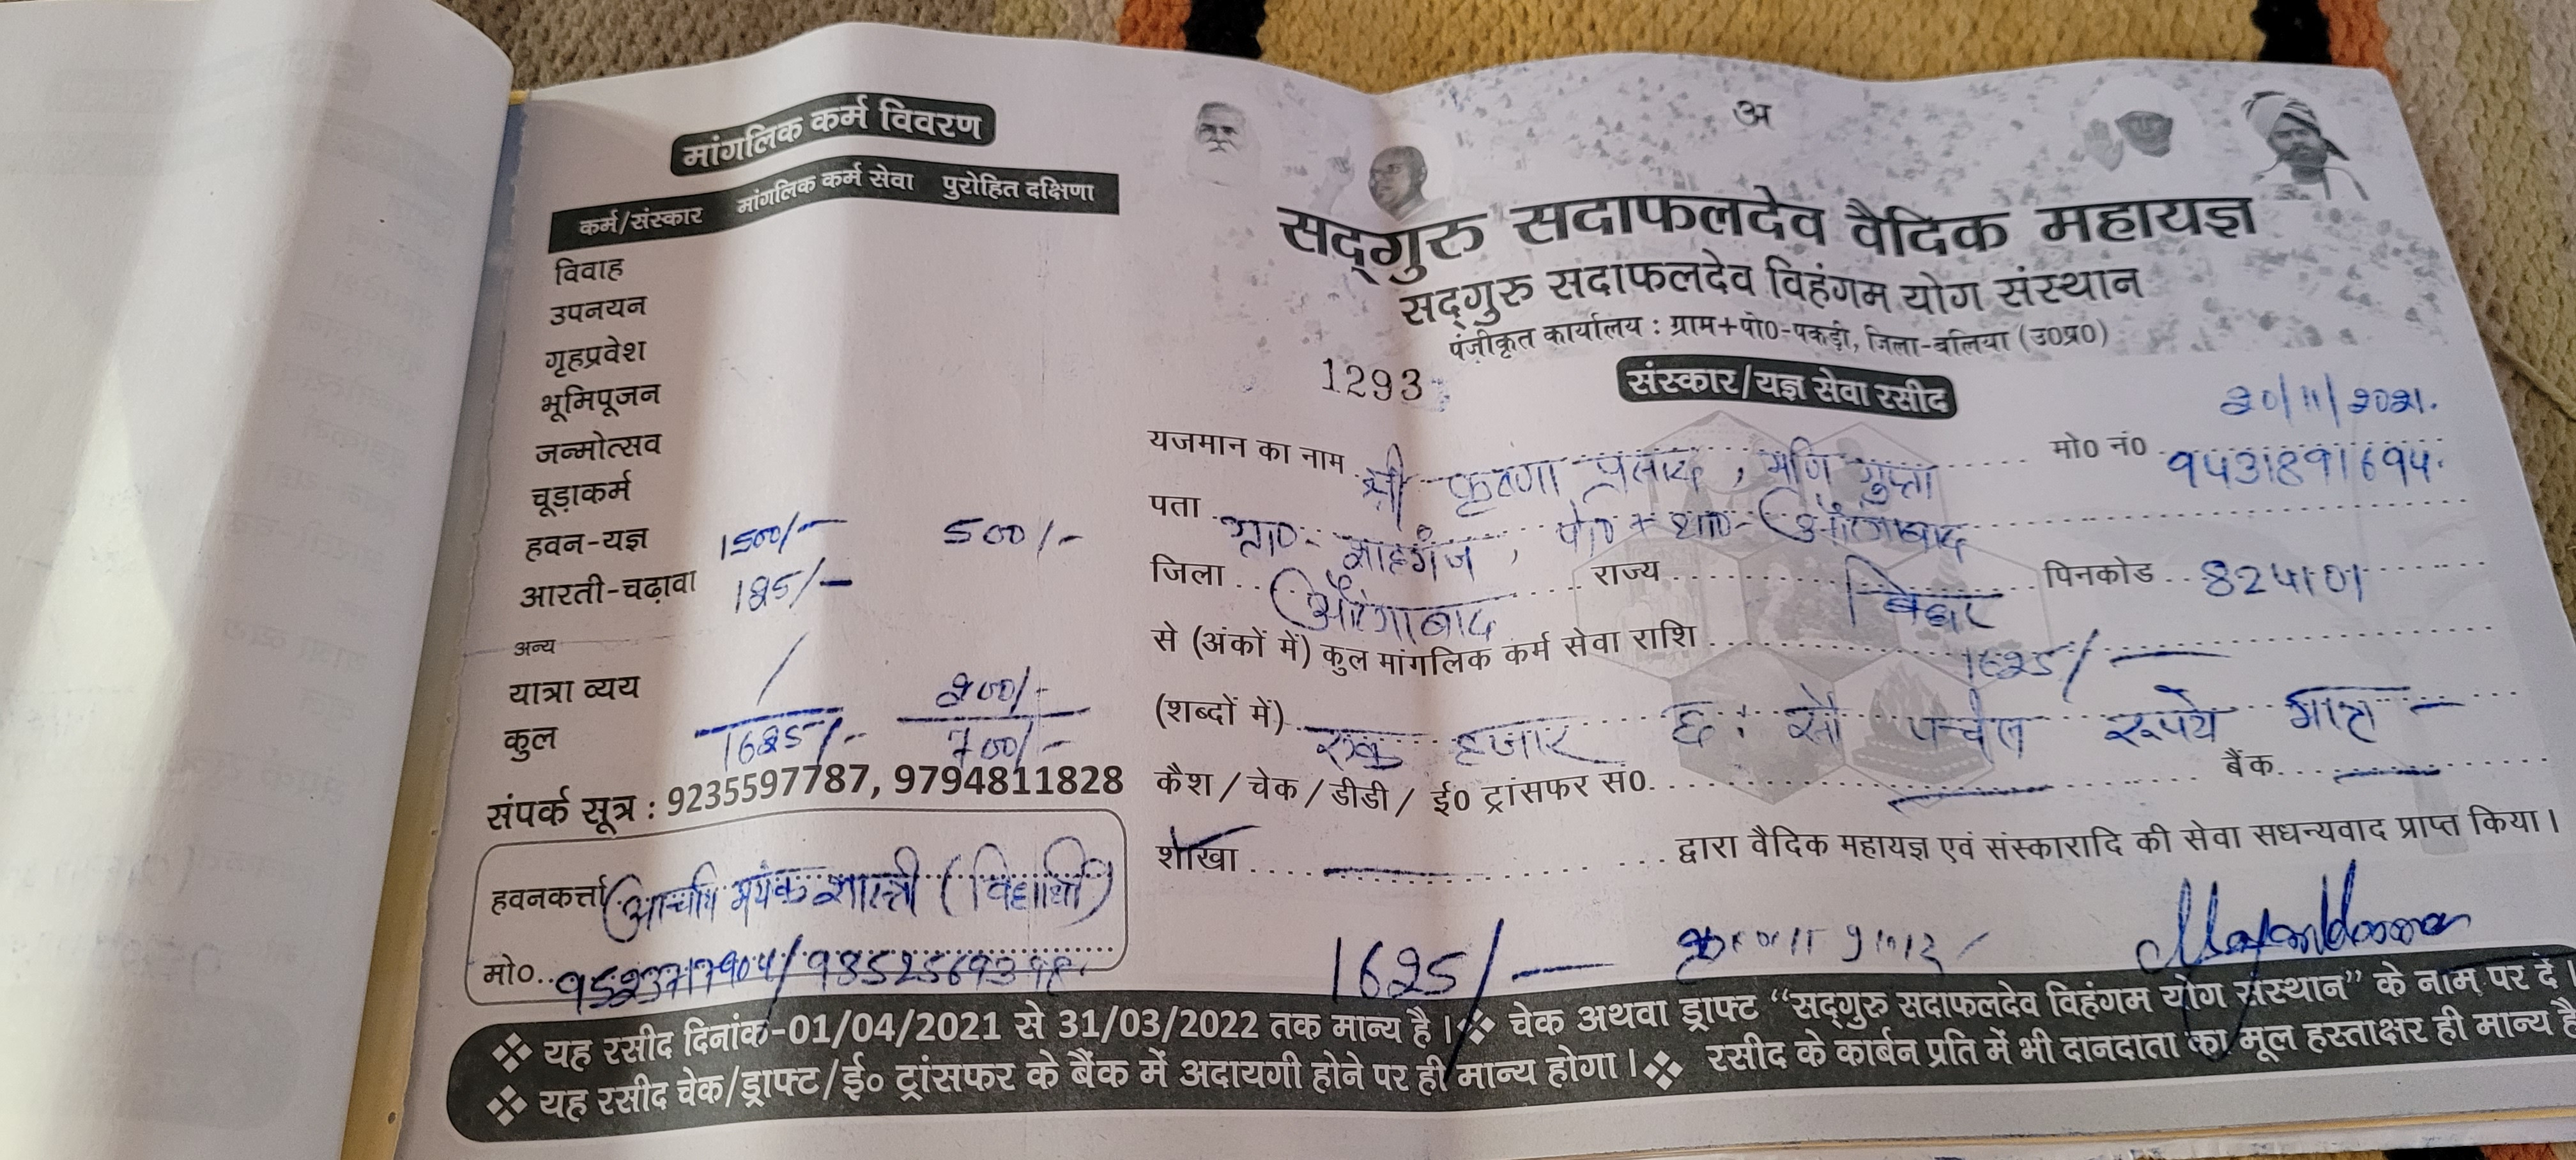 मांगलिक कर्म विवरण
कर्म/संस्कार मांगलिक कर्म सेवा पुरोहित दक्षिणा
विवाह
उपनयन
गृहप्रवेश
भूमिपूजन
जन्मोत्सव
चूड़ाकर्म
हवन-यज्ञ 1500/- 500/-
आरती-चढ़ावा 125/-
अन्य
यात्रा व्यय / 200/-
कुल 1625/- 700/-
संपर्क सूत्र : 9235597787, 9794811828
हवनकर्त्ता आचार्य मयंक शास्त्री (विद्यार्थी)
मो०..
अ
सद्गुरु सदाफलदेव वैदिक महायज्ञ
सद्गुरु सदाफलदेव विहंगम योग संस्थान
पंजीकृत कार्यालय : ग्राम+पो०-पकड़ी, जिला-बलिया (उ०प्र०)
1293
संस्कार/यज्ञ सेवा रसीद
20/11/2021.
यजमान का नाम श्री कृष्णा प्रसाद, मणि गुप्ता मो० नं० 9431891694.
पता ग्रा०- शाहगंज, पो० + था०- औरंगाबाद
जिला औरंगाबाद राज्य बिहार पिनकोड 824101
से (अंकों में) कुल मांगलिक कर्म सेवा राशि 1625/-
(शब्दों में) एक हजार छः सौ पच्चीस रूपये मात्र -
कैश / चेक / डीडी / ई० ट्रांसफर सं०. बैंक.
शाखा द्वारा वैदिक महायज्ञ एवं संस्कारादि की सेवा सधन्यवाद प्राप्त किया।
1625/-
❖ यह रसीद दिनांक-01/04/2021 से 31/03/2022 तक मान्य है। ❖ चेक अथवा ड्राफ्ट “सद्गुरु सदाफलदेव विहंगम योग संस्थान” के नाम पर दें।
❖ यह रसीद चेक/ड्राफ्ट/ई० ट्रांसफर के बैंक में अदायगी होने पर ही मान्य होगा। ❖ रसीद के कार्बन प्रति में भी दानदाता का मूल हस्ताक्षर ही मान्य है